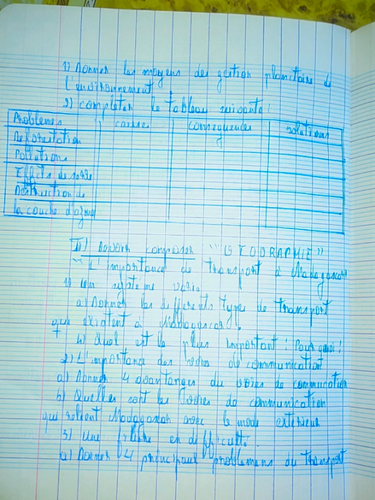 1) Donner les moyens des gestion planetaire de
l'environnement
2) completer le tableau suivante :
Problemes causes consequences solutions
Deforestation
Pollutions
Effets de serre
Destruction de
la couche d'ozone
II/ Devoir "GEOGRAPHIE"
"L'importance de transport à Madagascar
1) un système varié
a) Donner les differents types de transport
que existent à Madagascar.
b) Quel est le plus important ? Pourquoi ?
2) L'importance des voies de communication
a) Donner 4 avantages du voies de communication
b) Quelles sont les de communication
qui relient Madagascar avec le monde exterieur
3) une en difficulté.
a) Donner 4 principaux problemes du transport